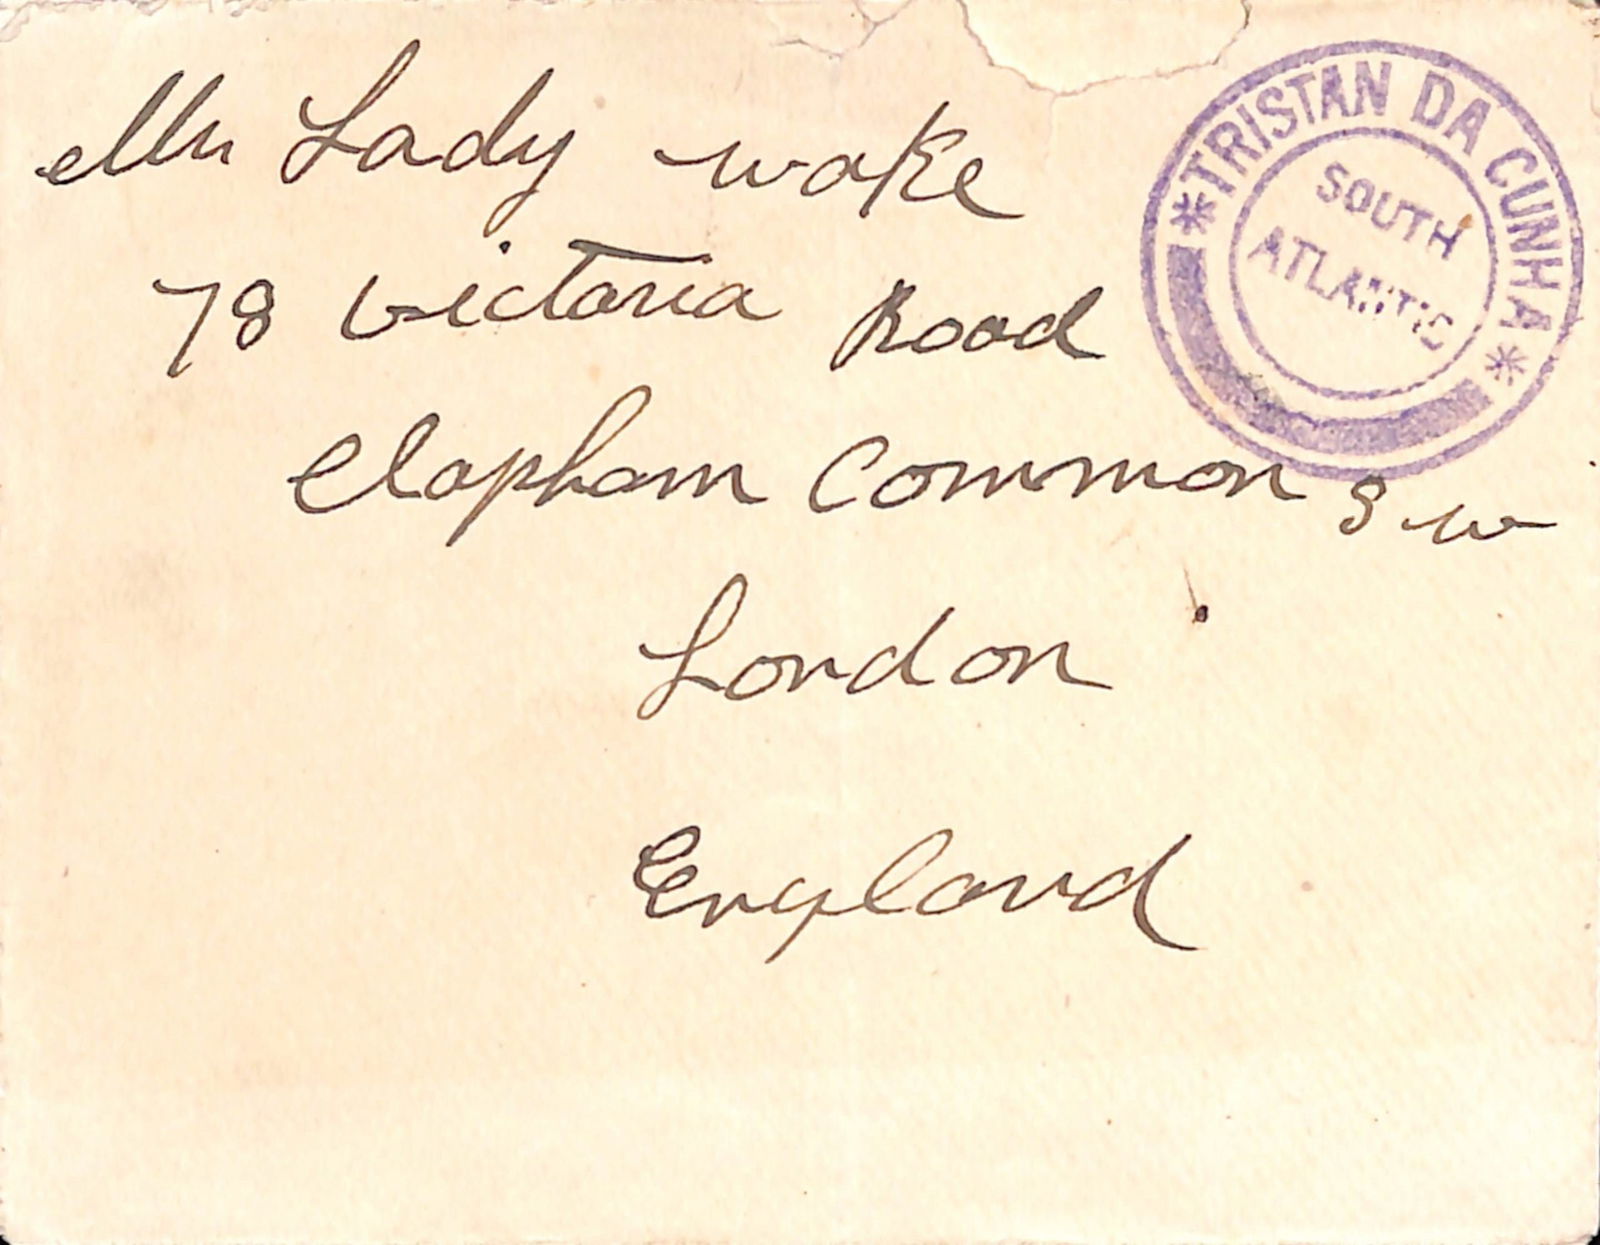 Mrs Lady wake
78 Victoria Road
Clapham Common S w
London
England
*TRISTAN DA CUNHA*
SOUTH
ATLANTIC